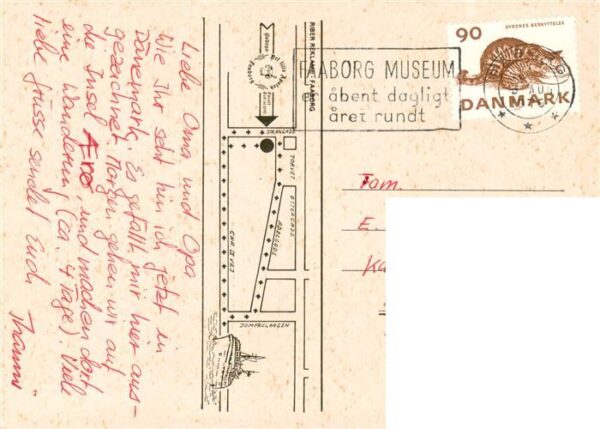 Liebe Oma und Opa
Wie Ihr seht bin ich jetzt in
Dänemark. Es gefällt mir hier aus-
gezeichnet. Morgen gehen wir auf
die Insel Ærö, und machen dort
eine Wanderung (ca. 4 Tage). Viele
liebe Grüsse sendet Euch
RIBER REKLAME - FAABORG
STRANDGADE
TORVET
ØSTERGADE
ADELGADE
CHR. IX VEJ
JOMFRULAAGEN
FAABORG MUSEUM
er åbent dagligt
året rundt
90
DYRENES BESKYTTELSE
DANMARK
Fam.
E.